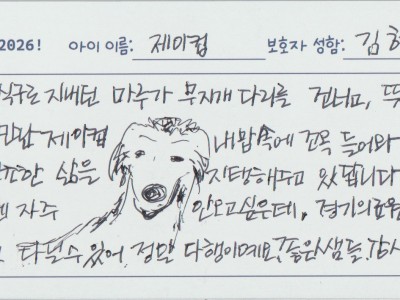 2026! 아이 이름: 제이컵 보호자 성함: 김
식구로 지내던 마루가 무지개 다리를 건너고,
제이컵 내 맘속에 들어와
삶을 지탱해주고 있답니다
자주 안오고싶은데,
다닐수있어 정말 다행이예요! 좋은샘들,